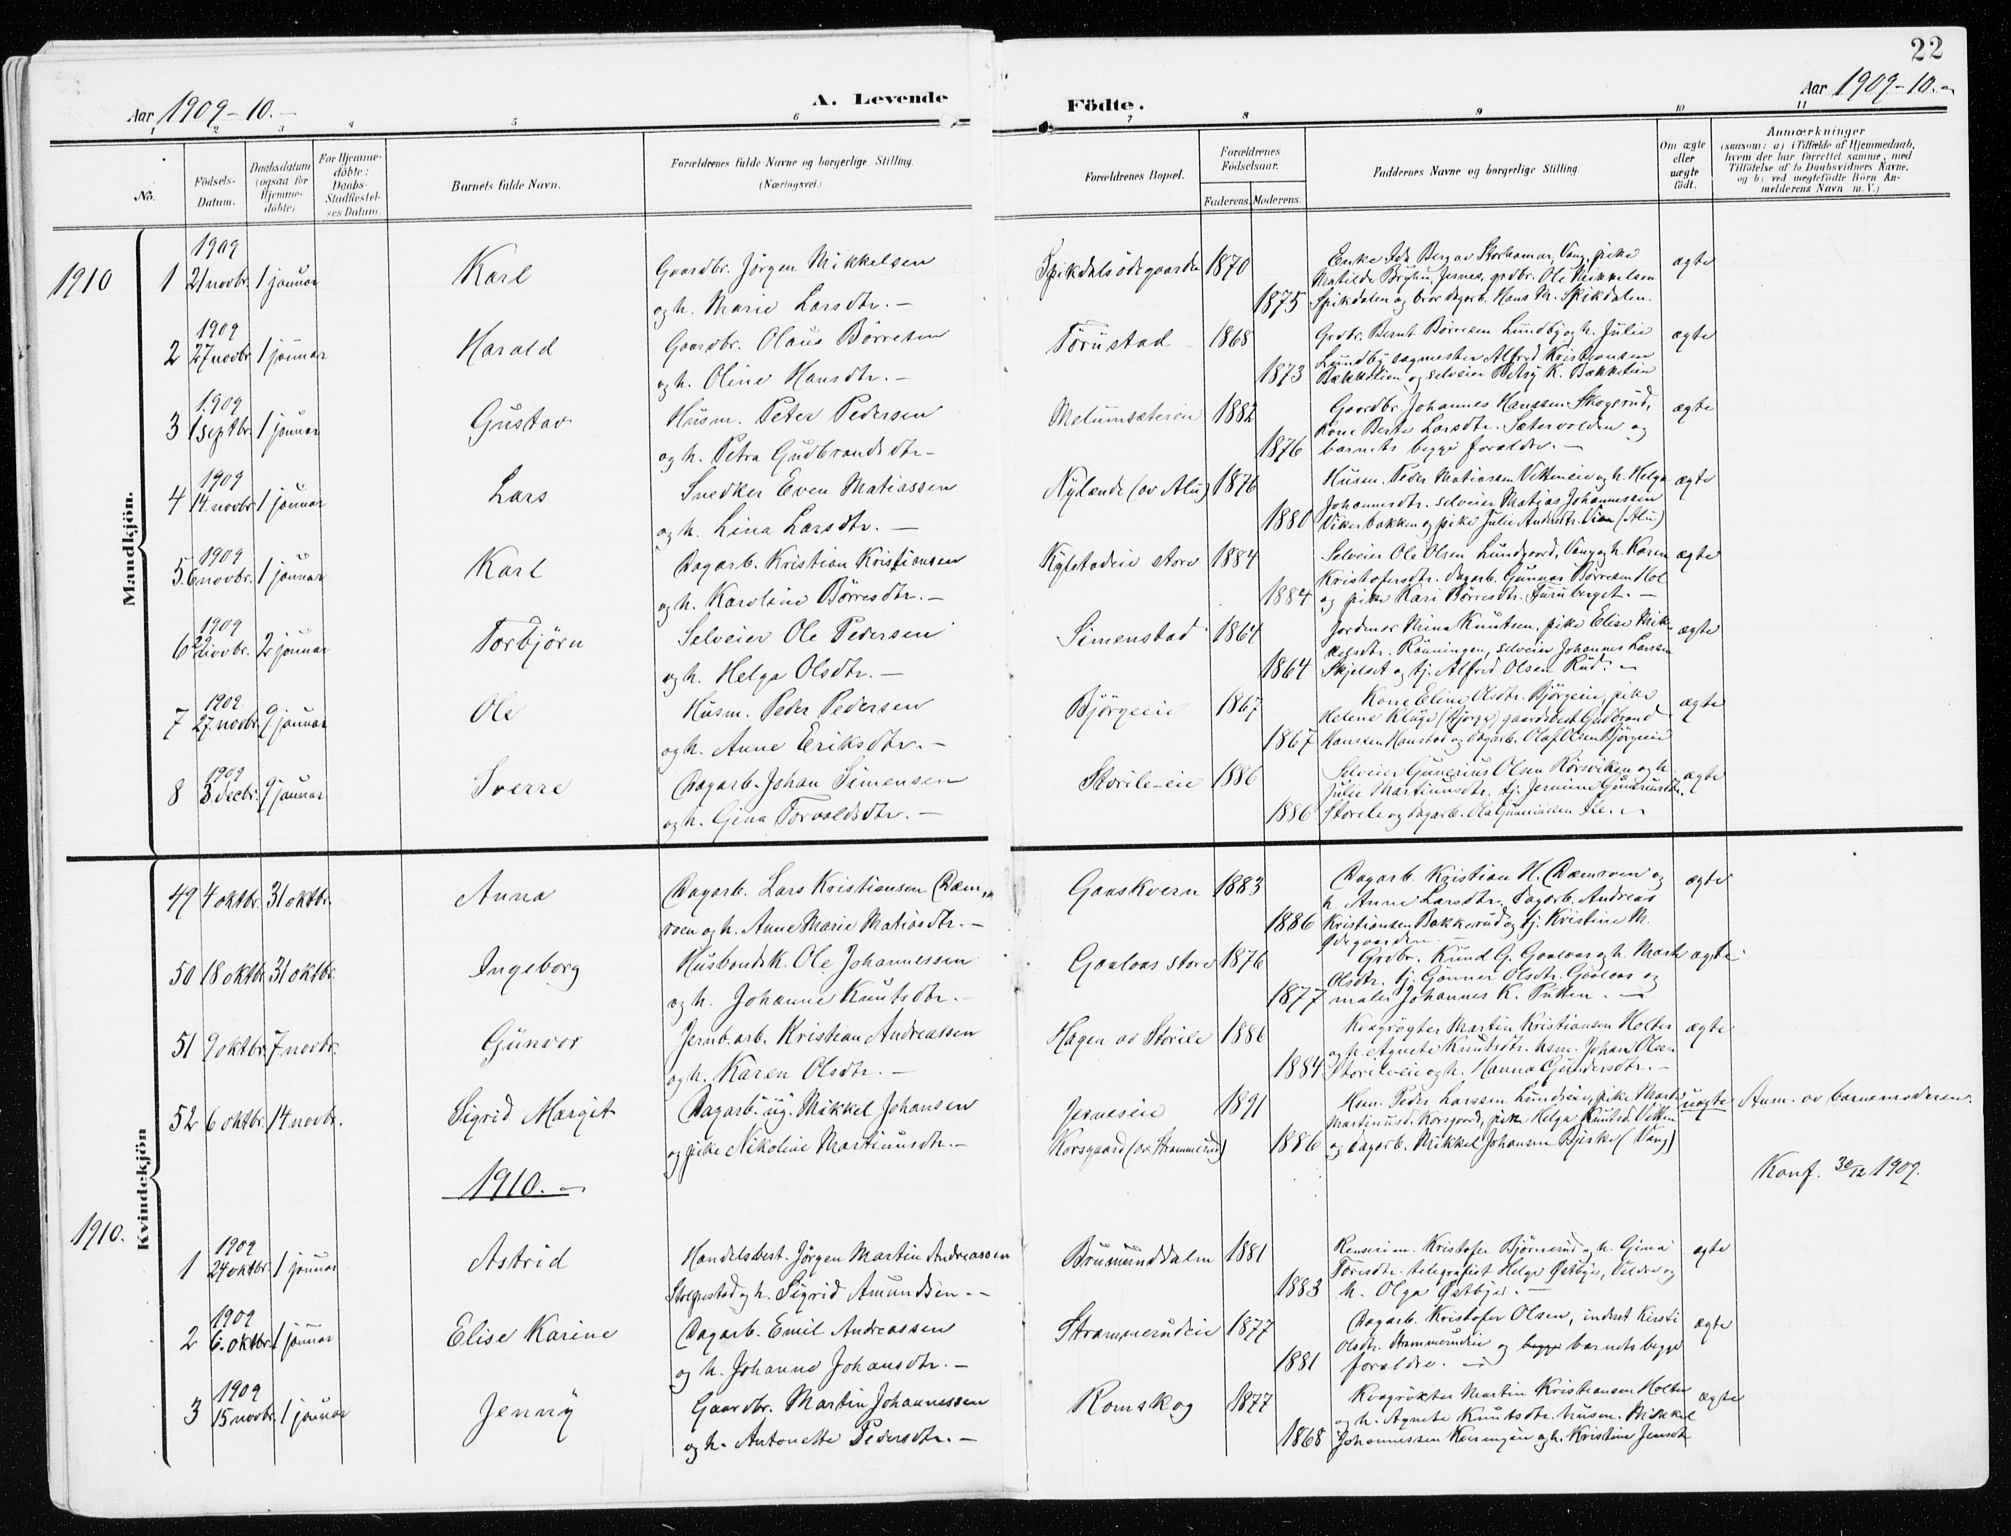 22
Aar 1909-10.-
A. Levende
Födte.
Aar 1909-10.-
1 2 3 4 5 6 7 8 9 10 11
No.
Födsels-
Datum.
Daabsdatum
(ogsaa for
Hjemme-
døbte)
For Hjemme-
døbte:
Daabs-
Stadfæstel-
ses Datum.
Barnets fulde Navn.
Forældrenes fulde Navne og borgerlige Stilling.
(Næringsvei.)
Forældrenes Bopæl.
Forældrenes
Fødselsaar.
Faderens. Moderens.
Faddernes Navne og borgerlige Stilling.
Om ægte
eller
uægte
født.
Anmærkninger
(saasom: a) i Tilfælde af Hjemmedaab,
hvem der har forrettet samme, med
Tilføielse af to Daabsvidners Navne,
og b) ved uægtefødte Börn An-
melderens Navn m. V.)
Mandkjön.
1910
1909
1 21 novbr. 1 januar Karl Gaardbr. Jörgen Mikkelsen
og h. Marie Larsdtr. -
Spikdalsödegaarden 1870 1875
Enke Ida Berg av Storhamar, Vang, pike
Matilde Bryhn, Jesnes, grdbr. Ole Mikkelsen
Spikdalen og bror dagarb. Hans M. Spikdalen.
ægte
1909
2 27 novbr. 1 januar Harald Gaardbr. Olaus Börresen
og h. Oline Hansdtr. -
Törustad 1868 1873
Grdbr. Bernt Börresen Lundby og h. Julie
Lundby sagmester Alfred Kristiansen
Bækkelien og selveier Betsy K. Bækkelien
ægte
1909
3 1 septbr. 1 januar Gustav Husm. Peter Pedersen
og h. Petra Gudbrandsdtr. -
Melumsæteren 1882 1876
Gaardbr. Johannes Hanssen Skogsrud,
kone Berte Larsdtr. Sætervolden og
barnets begge forældre. -
ægte
1909
4 14. novbr. 1 januar Lars Snedker Even Matiassen
og h. Lina Larsdtr. -
Nylænde (av Alu) 1876 1880
Husm. Peder Matiassen Vitteneie og h. Helga
Johannesdtr. selveier Matias Johannessen
Vikerbakken og pike Julie Andersdtr. Vien (Alu)
ægte
1909
5. 6 novbr. 1 januar Karl Dagarb. Kristian Kristiansen
og h. Karoline Börresdtr. -
Kylstadeie store 1884 1884
Selveier Ole Olsen Lundgaard, Vang og h. Karen
Kristofersdtr. dagarb. Gunnar Börresen Hol
og pike Kari Börresdtr. Furuberget. -
ægte
1909
6 22 novbr. 2 januar Torbjörn Selveier Ole Pedersen
og h. Helga Olsdtr. -
Simenstad 1864 1864
Jordmor Mina Knutsen, pike Elise Mik-
kelsdtr. Rönningen, selveier Johannes Larssen
Skjelset og tj. Alfred Olsen Rud. -
ægte
1909
7 27. novbr. 9 januar Ole Husm. Peder Pedersen
og h. Anne Eriksdtr. -
Björgeeie 1867 1867
Kone Eline Olsdtr. Björgeeie, pike
Helene Kluge (Björge) gaardsbest. Gudbrand
Hanssen Hanstad og dagarb. Olaf Olsen Björgeeie
ægte
1909
8 3. decbr. 9 januar Sverre Dagarb. Johan Simensen
og h. Gina Torvaldsdtr. -
Storile-eie 1886 1886
Selveier Gunerius Olsen Rörsviken og h.
Julie Martinusdtr. tj. Jermine Guneriusdtr.
Storile og dagarb. Ole Guneriussen Ile. -
ægte
Kvindekjön
49 4 oktbr. 31 oktbr. Anna Dagarb. Lars Kristiansen Dæm-
roen og h. Anne Marie Matiasdtr. -
Gaaskvern 1883 1886
Dagarb. Kristian H. Dæmroen og
h. Anne Larsdtr. Dagarb. Andreas
Kristiansen Bakkerud og tj. Kristine M.
Ødegaarden. -
ægte
50 18 oktbr. 31 oktbr. Ingeborg Husbondsk. Ole Johannessen
og h. Johanne Knutsdtr. -
Gaalaas store 1876 1877
Grdbr. Knud G. Gaalaas og h. Marte
Olsdtr. tj. Gunner Olsdtr. Gaalaas og
maler Johannes K. Putten. -
ægte
51 9 oktbr. 7 novbr. Gunvor Jernb.arb. Kristian Andreassen
og h. Karen Olsdtr. -
Hagen av Storile 1886 1884
Kvægrögter Martin Kristiansen Holter
og h. Agnete Knutsdtr. husm. Johan Olsen
Storileeie og h. Hanna Gundersdtr. -
ægte
52 6 oktbr. 14 novbr. Sigrid Margit Dagarb. ug. Mikkel Johansen
og pike Nikoline Martinusdtr. -
Jesneseie
Korsgaard (av Strammerud) 1891 1886
Hsm. Peder Larssen Lundseie, pike Marte
Martinusdtr. Korsgaard, pike Helga Knutsd. Vitten
og dagarb. Mikkel Johansen Bjeske (Vang)
uægte Anm. av barnemoderen.
Konf. 30/12 1909.
1910. -
1910.
1909
1 24 oktbr. 1 januar Astrid Handelsbest. Jörgen Martin Andreassen
Stolpestad og h. Sigrid Amundsen. -
Brumunddalen 1881 1883
Renserim. Kristofer Björnerud og h. Gina
Toresdtr. telegrafist Helge Østbye, Veldre og
h. Olga Østbye. -
ægte
1909
2 6. oktbr. 1 januar Elise Karine Dagarb. Emil Andreassen
og h. Johanne Johansdtr. -
Strammerudeie 1877 1881
Dagarb. Kristofer Olsen, inderst Kersti
Olsdtr. Strammerudeie og begge barnets begge
forældre. -
ægte
1909
3 15 novbr. 1 januar Jenny Gaardbr. Martin Johannessen
og h. Antonette Pedersdtr. -
Romskog 1877 1868
Kvægrökter Martin Kristiansen Holter
og h. Agnete Knutsdtr. husm. Mikkel
Johannessen Kværnengen og h. Kristine Jensdtr
ægte